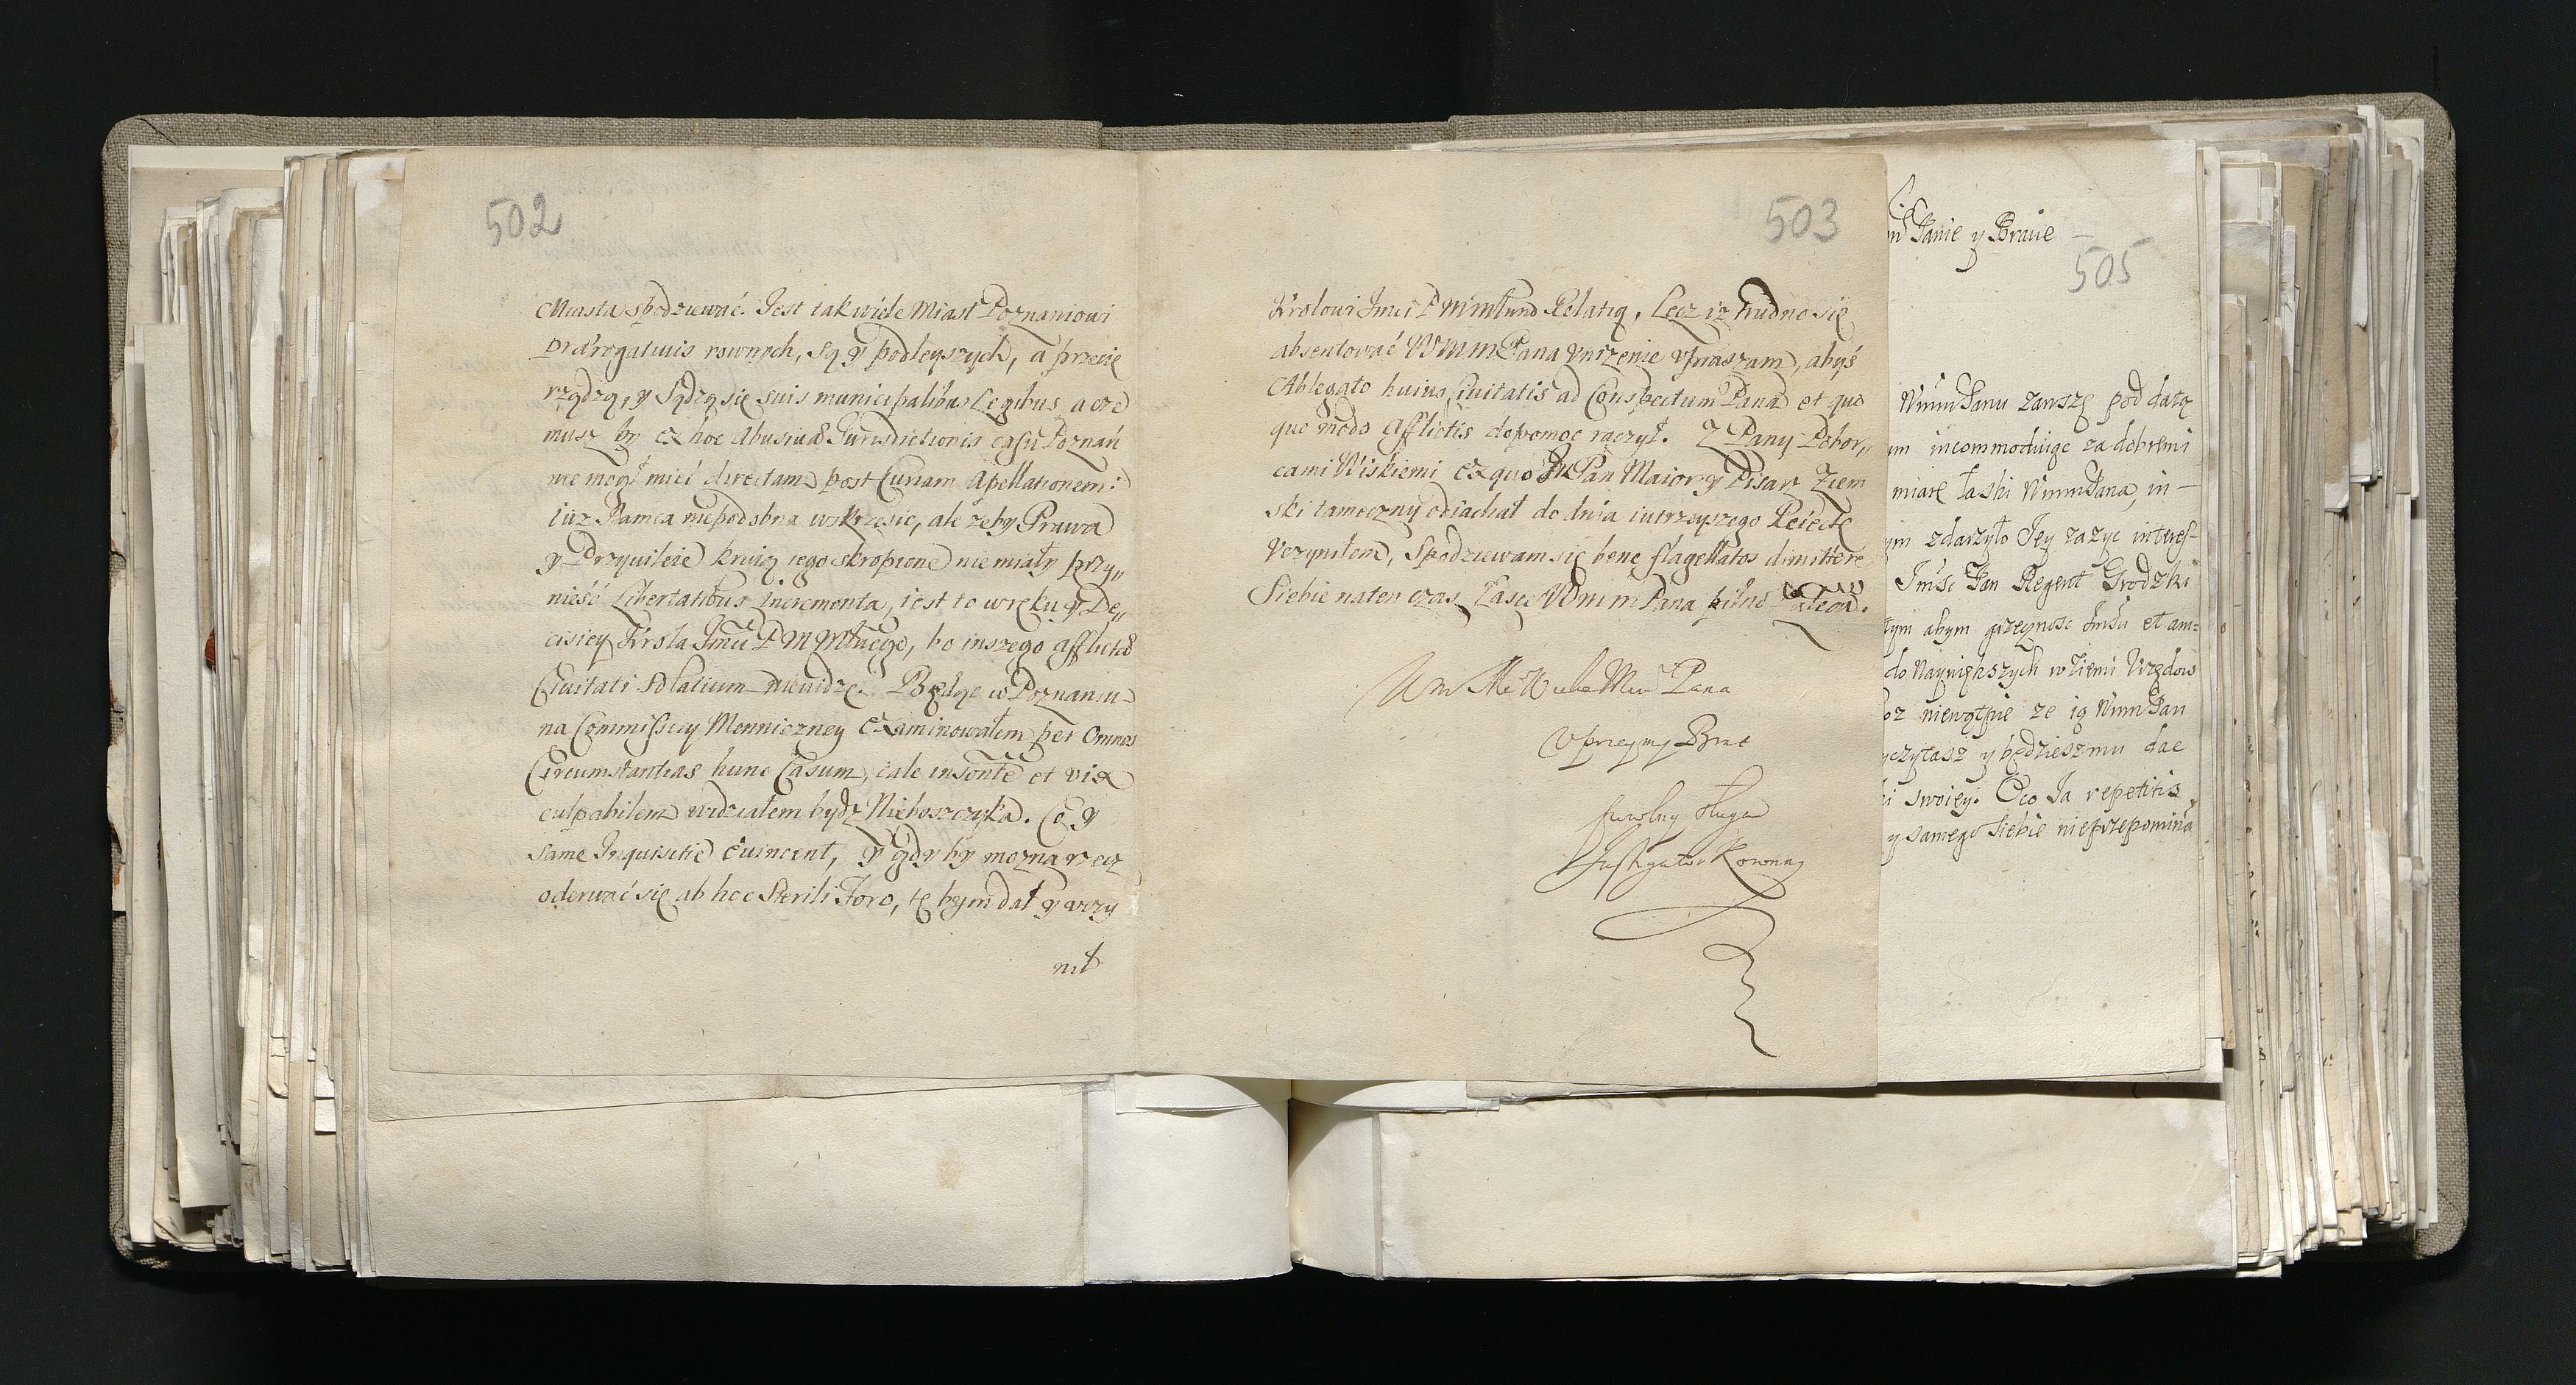 502
Miasta spodziewać. Jest tak wiele Miast Poznaniowi
prærogatiuis rownych, są y podleyszych, a przecię
rządzą, y sądzą się suis municipalibus Legibus, a cze
musz by ex hoc abusiuæ Jurisdictionis casu Poznań
nie mogł mieć directam post Curiam Apellationem:
iuz Ramca niepodobna wskrzesic, ale zeby Prawa
y Przywileie krwią iego skropione nie miały przy„
nieść Libertatibus incrementa, iest to w ręku y De„
cisiey Krola Jmci P M Młłciego, bo inszego afflictæ
Ciuitati Solatium niewidzę. Będąc w Poznaniu
na Commissiey Menniczney examinowałem per Omnes
Circumstantias hunc Casum, cale insontē et vix
culpabilem widziałem bydz Nieboszczyka. Co y
same Inquisitie euincent, y gdyby mozna rzecz
oderwać się ab hoc Sterili Foro, tę bym dał y vczy
nił
503
Krolowi Jmci P M Relatią, Lecz iz trudno się
absentować WMMPana vnizenie vpraszam, abyś
Ablegato huius Ciuitatis ad Conspectum Pana et quo
quo modo afflictis dopomoc raczył. Z Pany Pobor„
cami Wiskiemi ex quo JM Pan Maior y Pisarz Ziem
ski tameczny odiachał do dnia iutrzeyszego Reiectę
Vczyniłem, Spodziewam się bene flagellatos dimittere
Siebie na ten czas Łasce WMMPana pilno
Wm Me Wielce Mću Pana
Vprzeymy Brat
Powolny sługa
Instigator Koronny
Panie y Bracie
505
WmmPanu zawsze pod datą
incommoduiąc za dobremi
miarę łaski WmmPana, in-
zdarzyło Jey zazyc interes-
Jmśc Pan Regent Grodzki
tym abym grzeczność Jmści et am-
do Nayniększych w Ziemi Vrzędow
niewątpię ze ią WmmPan
y będziesz mu dac
swoiey. Oco Ja repetitis
y samego siebie nieprzepomina